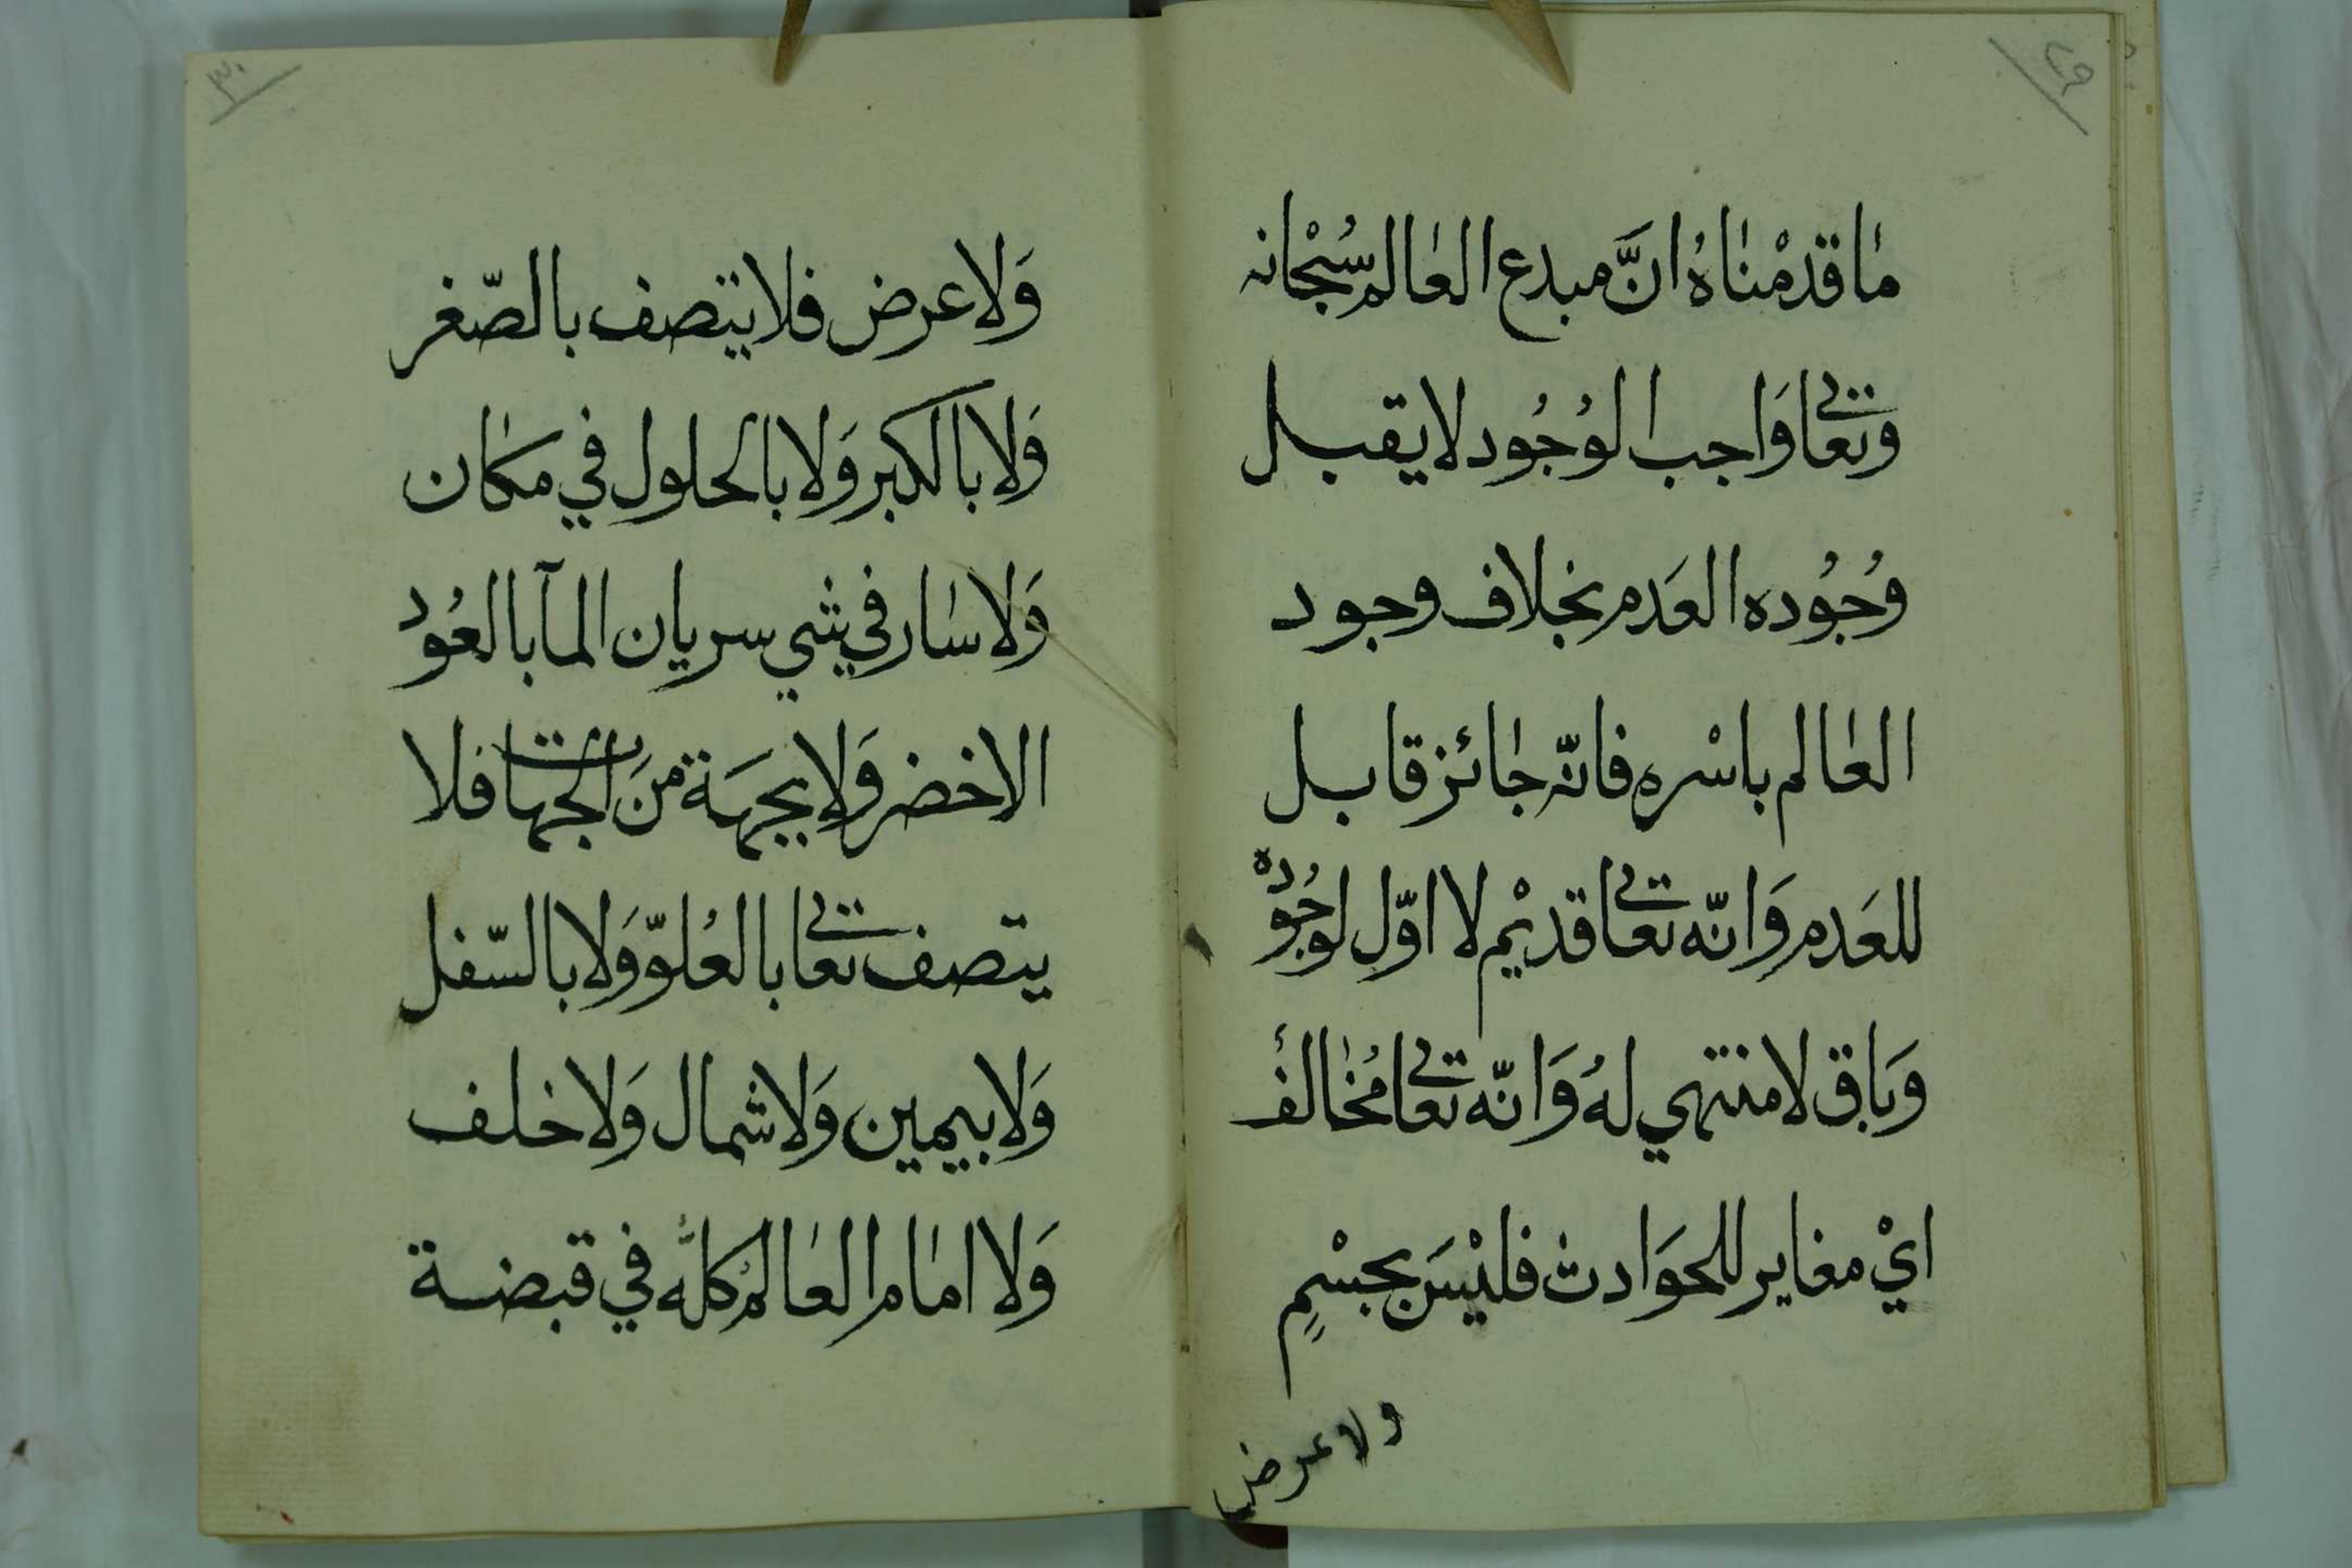 ٢٩
مَا قدمْنَاهُ انَّ مبدع العَالم سُبْحَانه
وتعَالى وَاجب الوُجُود لا يقبل
وُجُوده العَدم بخلاف وجود
العَالم باسْره فانّه جَائز قابل
للعَدم وَانّه تعَالى قديْم لا اوّل لوجُوْده
وَبَاق لا منتهي لهُ وَانّه تعَالى مُخَالفٌ
ايْ مغاير للحوَادث فليْسَ بجسْمٍ
ولا عرض
٣٠
وَلا عرض فلا يتصف بالصّغر
وَلا بالكبر وَلا بالحلول في مكَان
وَلا سَار في شي سريان المآ بالعُود
الاخضر وَلا بجهَة منَ الجهات فلا
يتصف تعَالى بالعُلوّ وَلا بالسّفل
وَلا بيمين وَلا شمال وَلا خلف
وَلا امَام العَالمُ كلُّه في قبضة